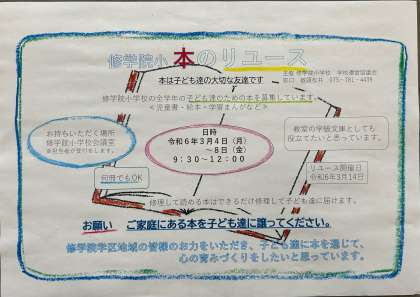 修学院小 本のリユース
本は子ども達の大切な友達です
主催 修学院小学校 学校運営協議会
075-781-4439
修学院小学校の全学年の子ども達のための本を募集しています。
<児童書・絵本・学習まんがなど>
お持ちいただく場所
修学院小学校会議室
日時
令和6年3月4日(月)
~8日(金)
9:30~12:00
教室の学級文庫としても
役立てたいと思っています。
何冊でもOK
リユース開催日
令和6年3月14日
修理して読める本はできるだけ修理して子ども達に届けます。
お願い ご家庭にある本を子ども達に譲ってください。
修学院学区地域の皆様のお力をいただき、子ども達に本を通じて、
心の育みづくりをしたいと思っています。